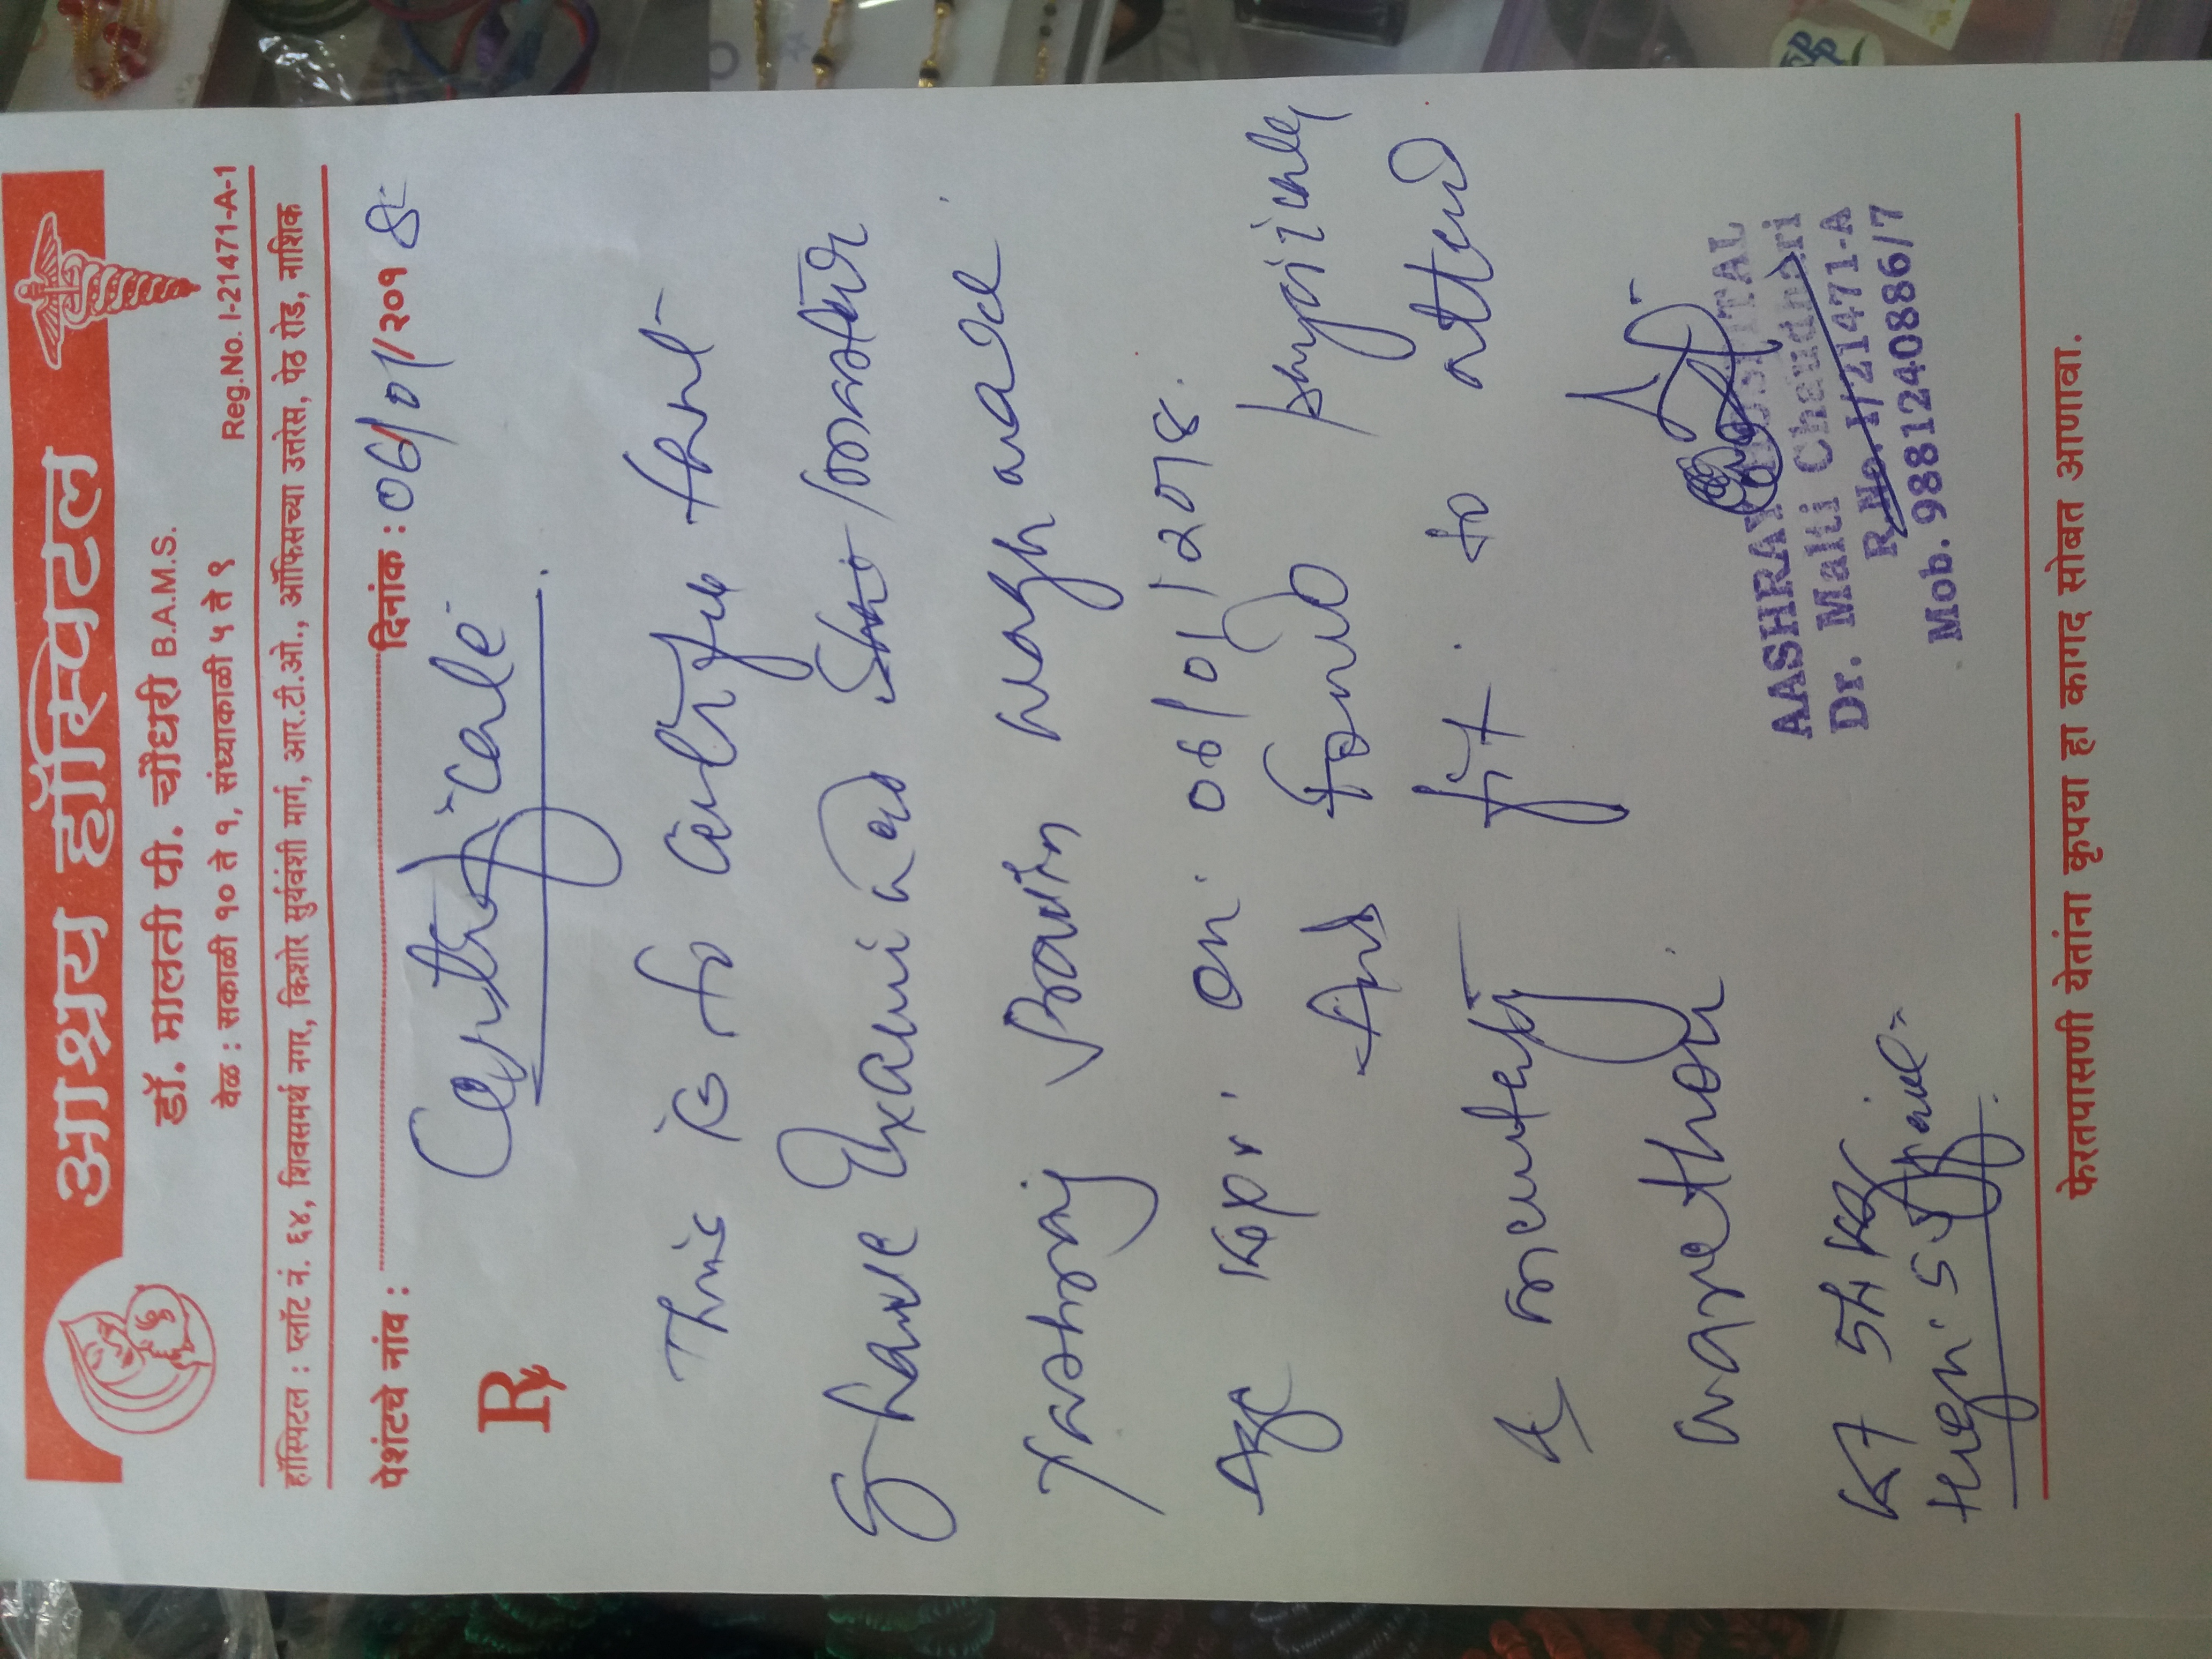 आश्रय हॉस्पिटल
डॉ. मालती पी. चौधरी B.A.M.S.
वेळ : सकाळी १० ते १, संध्याकाळी ५ ते ९
Reg.No. I-21471-A-1
हॉस्पिटल : प्लॉट नं. ६४, शिवसमर्थ नगर, किशोर सुर्यवंशी मार्ग, आर.टी.ओ., ऑफिसच्या उत्तरेस, पेठ रोड, नाशिक
पेशंटचे नांव : दिनांक : 06/01/२०१8
Rx
Certificate
This is to certify that
I have Examined
Pravin wagh
Age on 06/01/2018.
And found physically
& fit to attend
marethon.
AASHRAY HOSPITAL
Dr. Malti Chaudhari
R.No. I/21471-A
Mob. 9881240886/7
फेरतपासणी येतांना कृपया हा कागद सोबत आणावा.